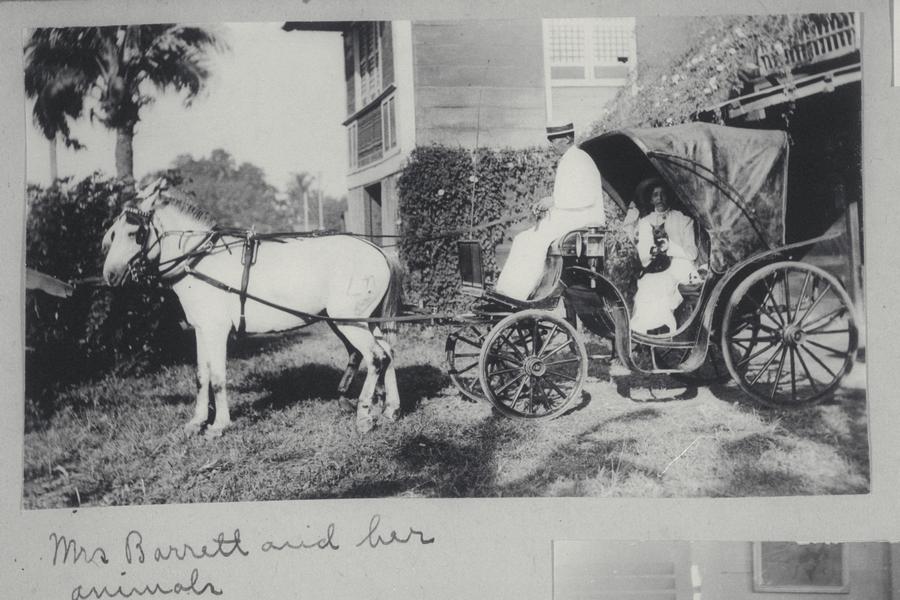 Mrs Barrett and her
animals